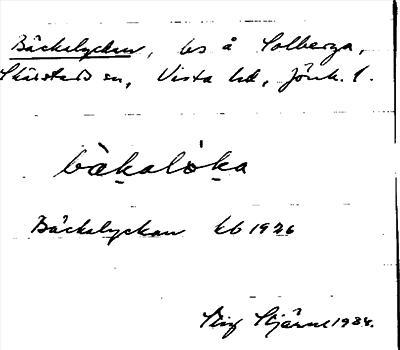 Bäckalyckan, ls å Solberga,
Skärstads sn, Vista hd, Jönk. l.
bækalòka
Bäckalyckan kb 1926
Stig Stjärne 1934.